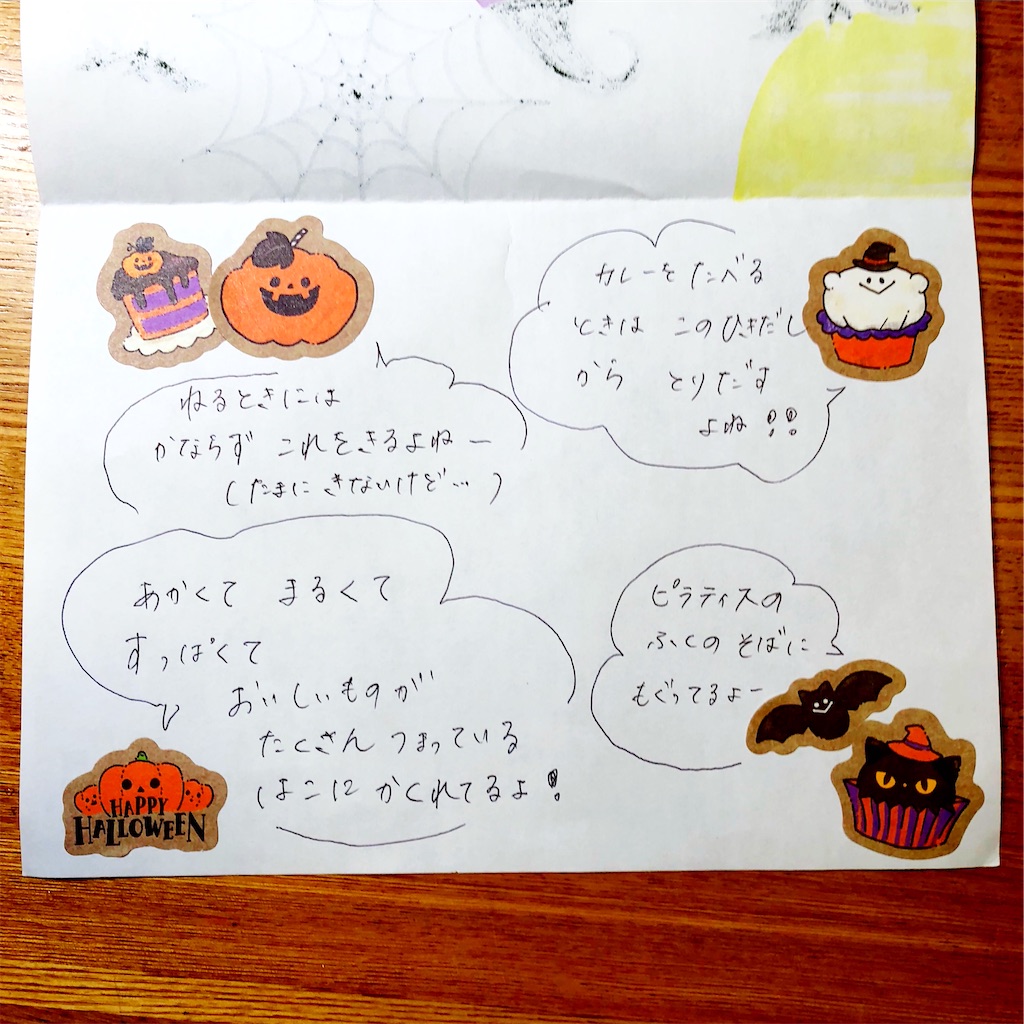 ねるときには
かならず これをきるよねー
(たまに きないけど…)
カレーを たべる
ときは このひきだし
から とりだす
よね!!
あかくて まるくて
すっぱくて
おいしいものが
たくさん つまっている
はこに かくれてるよ!
ピラティスの
ふくの そばに
もぐってるよー
HAPPY
HALLOWEEN